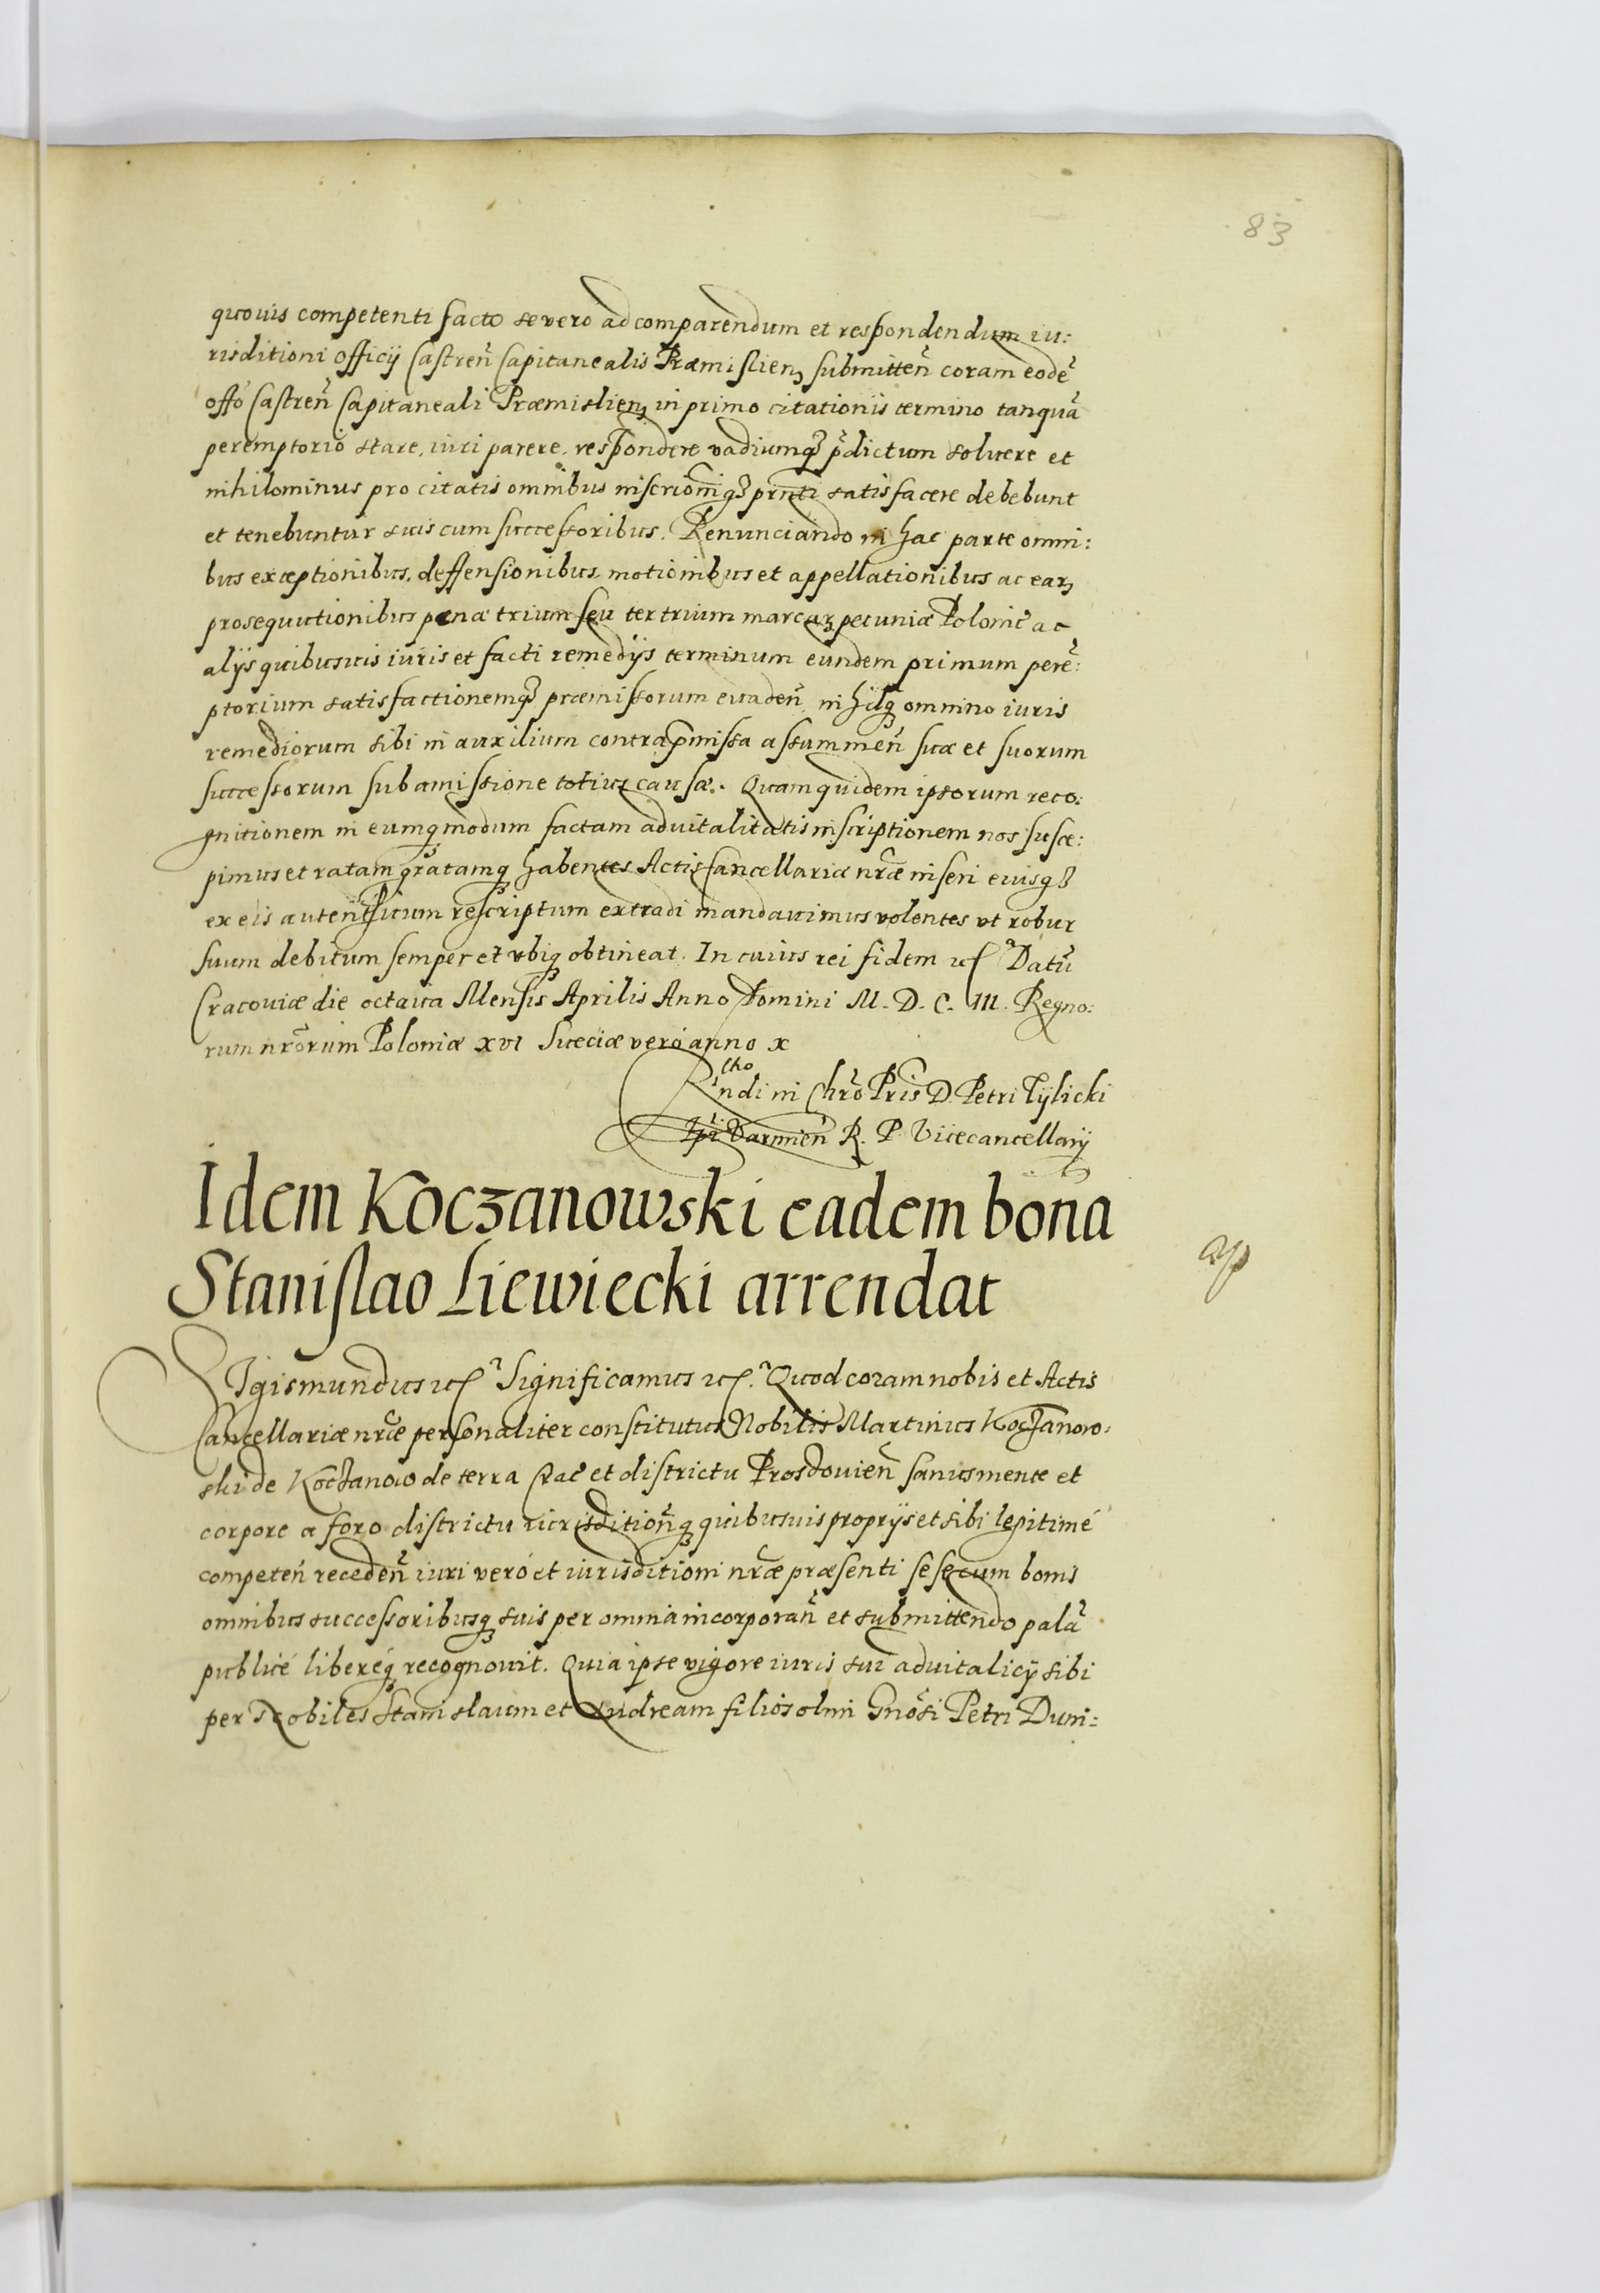 83
quovis competenti facto se vero ad comparendum et respondendum iu:
risditioni officÿ Castreñ Capitanealis Præmislienʒ submitteñ coram eodẽ
offo Castreñ Capitaneali Præmislienʒ in primo citationis termino tanquã
peremptorio stare, iuri parere, respondere vadiumqȝ p̃dictum solvere et
nihilominus pro citatis omnibus inscrionĩqȝ prnti satisfacere debebunt
et tenebuntur suis cum successoribus. Renunciando in hac parte omni:
bus exceptionibus, deffensionibus motionibus et appellationibus ac earʒ
prosequutionibus pœnæ trium seu ter trium marcarʒ pecuniæ Polonic̃ ac
alÿs quibusvis iuris et facti remedÿs terminum eundem primum perẽ:
ptorium satisfactionemqȝ præmissorum evadeñ nihilqȝ omnino iuris
remediorum sibi in auxilium contra p̃missa assummeñ suæ et suorum
successorum sub amissione totius causæ. Quam quidem ipsorum reco:
gnitionem in eumqȝ modum factam advitalitatis inscriptionem nos susce:
pimus et ratam gratamqȝ habentes Actis Cancellariæ nræ inseri eiusqȝ
ex eis autenthicum rescriptum extradi mandavimus volentes vt robur
suum debitum semper et vbiqȝ obtineat. In cuius rei fidem etc̃ Datũ
Cracoviæ die octava Mensis Aprilis Anno Domini M. D. C. III. Regno:
rum nrõrum Poloniæ xvi Sueciæ vero anno x
Rñdi in Chrõ Pris D. Petri Tÿlicki
Epĩ Varmieñ R. P. Vicecancellarÿ
Idem Koczanowski eadem bona
Stanislao Liewiecki arrendat
Sigismundus etc̃ Significamus etc̃. Quod coram nobis et Actis
Cancellariæ nræ personaliter constitutus Nobilis Martinus Koczanow:
ski de Koczanow de terra Crac̃ et districtu Prosdovieñ sanus mente et
corpore a foro districtu iurisditioñqȝ quibusuis proprÿs et sibi legitimé
competeñ recedeñ iuri veró et iurisditioni nræ præsenti se se cum bonis
omnibus successoribusqȝ suis per omnia incorporañ et submittendo palã
publicé liberéqȝ recognovit. Quia ipse vigore iuris sui advitalicÿ sibi
per Nobiles Stanislaum et Andream filios olim Gnõsi Petri Duni: